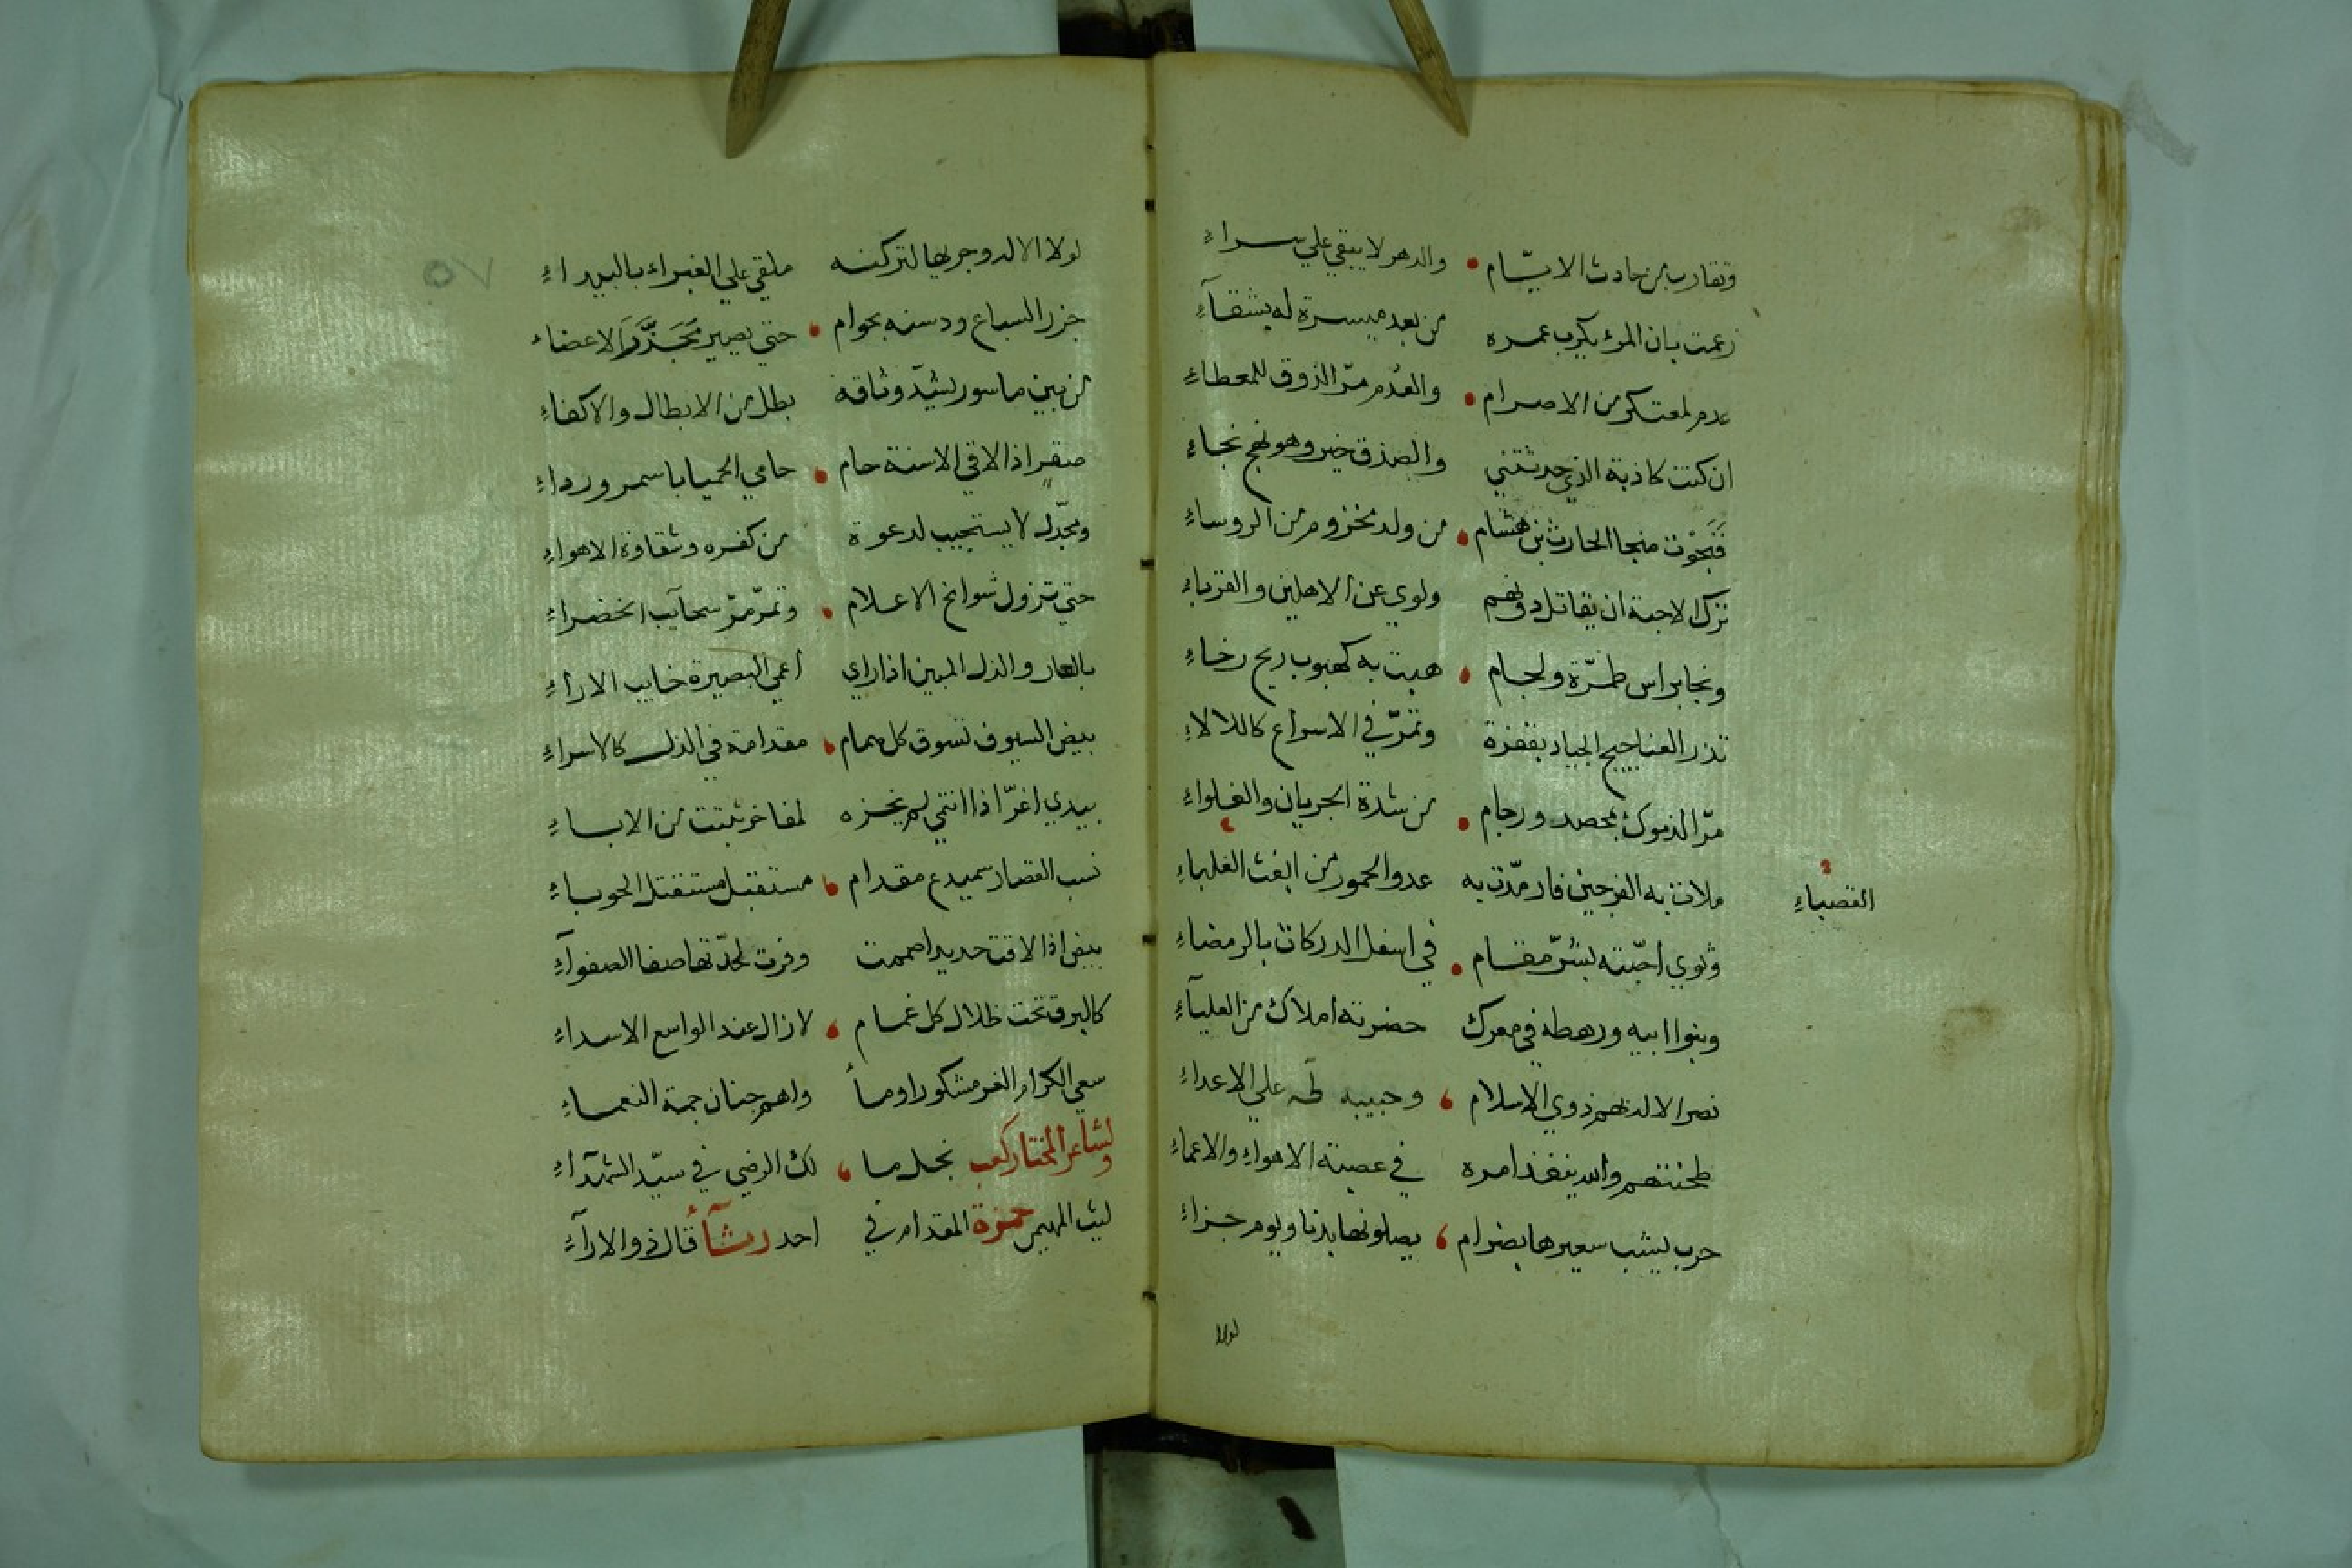 وتقارب من حادث الايّام • والدهر لا يبقي علي سراءِ
زعمت بان المرء يكرب عمره من بعد ميسرة له بشقآءِ
عدم لمعتكر من الاصرام • والعُدم مرّ الذوق للمعطاءِ
ان كنت كاذبة الذي حدثتني والصدق خير وهو نهج نجاءِ
فَنَجَوْت منجا الحارث بن هشام • من ولد مخزوم من الروساءِ
ترك الاحبة ان يقاتل دونهم ولوي عن الاهلين والقرباءِ
ونجا براس طمرّة ولجام • هبت به كهبوب ريح رخاءِ
تذر العناجيج الجياد بقفزة وتمرّ في الاسراع كاللالاءِ
مرّ الذموك بمحصد ورجام • من شدة الجريان والغلواءِ
ملات به الفرجين فارمدّت به عدو الحمور من ابغث الغلباءِ
القصباءِ
وثوي احبّته بشرّ مقام • في اسفل الدركات بالرمضاءِ
وبنوا ابيه ورهطه في معرك حضرته املاك من العليآءِ
نصر الاله بهم ذوي الاسلام • وحبيبه طه علي الاعداءِ
طحنتهم والله ينفذ امره في عصبة الاهواءِ والاعماءِ
حرب يشب سعيرها بضرام • يصلونها بدنا ويوم جزاءِ
لولا
لولا الاله وجريها لتركنه ملقي علي الغبراء بالبيداءِ
جزر السباع ودسنه بحوام • حتي يصير مُجَذَّرَ الاعضاء
من بين ماسور يشدّ وثاقه بطل من الابطال والاكفاءِ
صقر اذا لاقي الاسنة حام • حامي الحميا باسمر ورداءِ
ومجدّل لا يستجيب لدعوة من كفره وشقاوة الاهواءِ
حتي تزول شوامخ الاعلام • وتمرّ مرّ سحآيب الخضراءِ
بالعار والذل المبين اذا راي اعمي البصيرة خايب الاراءِ
بيض السيوف تسوق كل همام • مقدامة في الذل كالاسراءِ
بيدي اغرّ اذا انتمي لم يخزه لمفاخر ثبتت من الاباءِ
نسب القصار سميدع مقدام • مستقبل مستقتل الحوباءِ
بيض اذا لاقت حديدا صممت وفرت لحدّتها صفا الصفوآءِ
كالبرق تحت ظلال كل غمام • لازال عند الواسع الاسداءِ
سعي الكرام الغر مشكورا وما واهم جنان جمة النعماءِ
ولشاعر المختار كعب نجل ما • لك الرضي في سيّد الشهدآءِ
ليث المهيمن حمزة المقدام في احد رثآءً قال ذو الارآءِ
٥٧